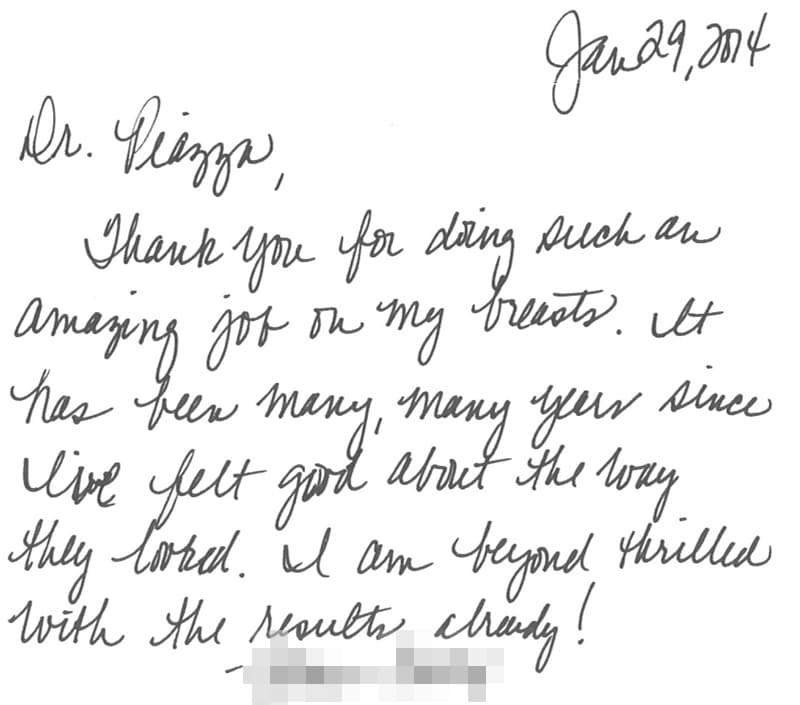 Jan 29, 2014
Dr. Piazza,
Thank you for doing such an
amazing job on my breasts. It
has been many, many years since
I've felt good about the way
they looked. I am beyond thrilled
with the results already!